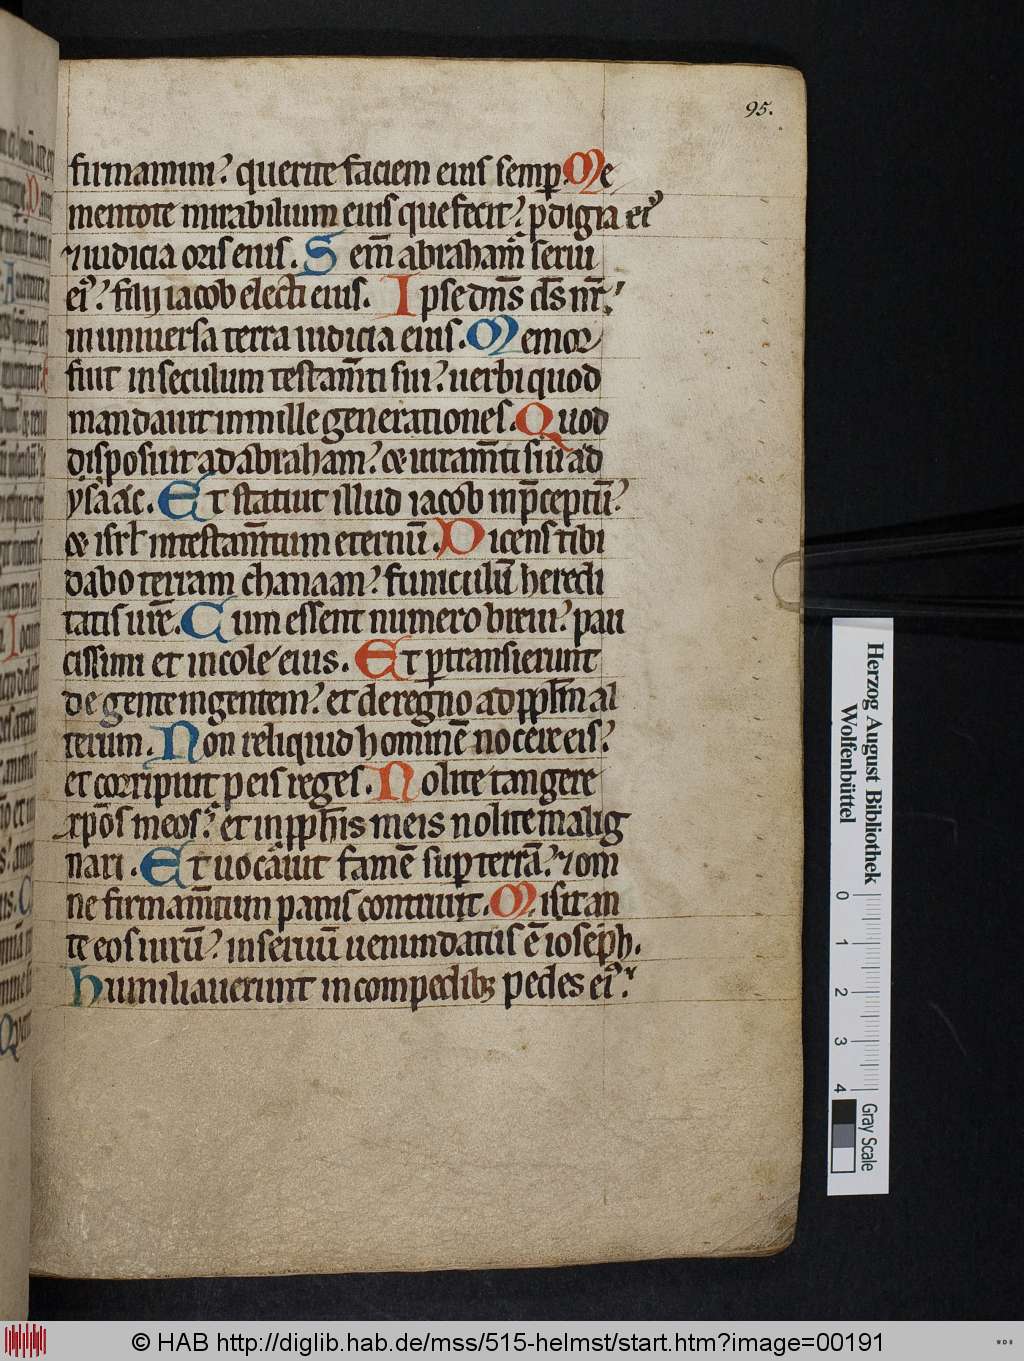 95.
firmamini? querite faciem eius semp. Me
mentote mirabilium eius que fecit? pdigia ei᾿
⁊ iudicia oris eius. Sem̄ abraham serui
ei᾿? filij iacob electi eius. Ipse dn̄s ds̄ nr̄?
in uniuersa terra iudicia eius. Memor
fuit in seculum testam̄ti sui? uerbi quod
mandauit in mille generationes. Quod
disposuit ad abraham? & iuram̄ti sui ad
ysaac. Et statuit illud iacob in p̄ceptū?
& isrl̄ in testam̄tum eternū. Dicens tibi
dabo terram chanaan? funiculū heredi
tatis ur̄e. Cum essent numero breui? pau
cissimi et incole eius. Et ptransierunt
de gente in gentem? et de regno ad pplm̄ al
terum. Non reliquid hominē nocere eis?
et corripuit p eis reges. Nolite tangere
xpōs meos? et in pph̄is meis nolite malig
nari. Et uocauit famē sup terrā? ⁊ om
ne firmam̄tum panis contriuit. Misit an
te eos uirū? in seruū uenundatus ē ioseph.
Humiliauerunt in compedibꝫ pedes ei᾿?
Herzog August Bibliothek
Wolfenbüttel
0 1 2 3 4
Gray Scale
© HAB http://diglib.hab.de/mss/515-helmst/start.htm?image=00191